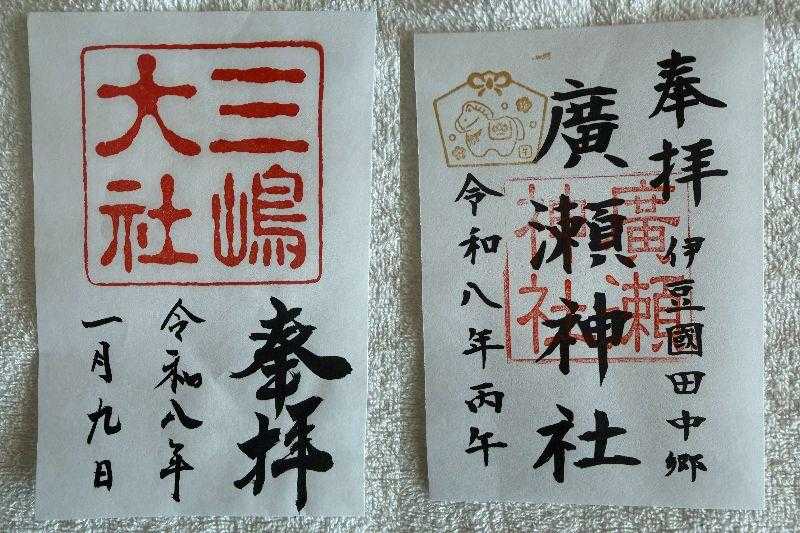 三嶋
大社
奉拝
令和八年
一月九日
奉拝
伊豆國田中郷
廣瀬神社
廣瀬
神社
令和八年丙午
午